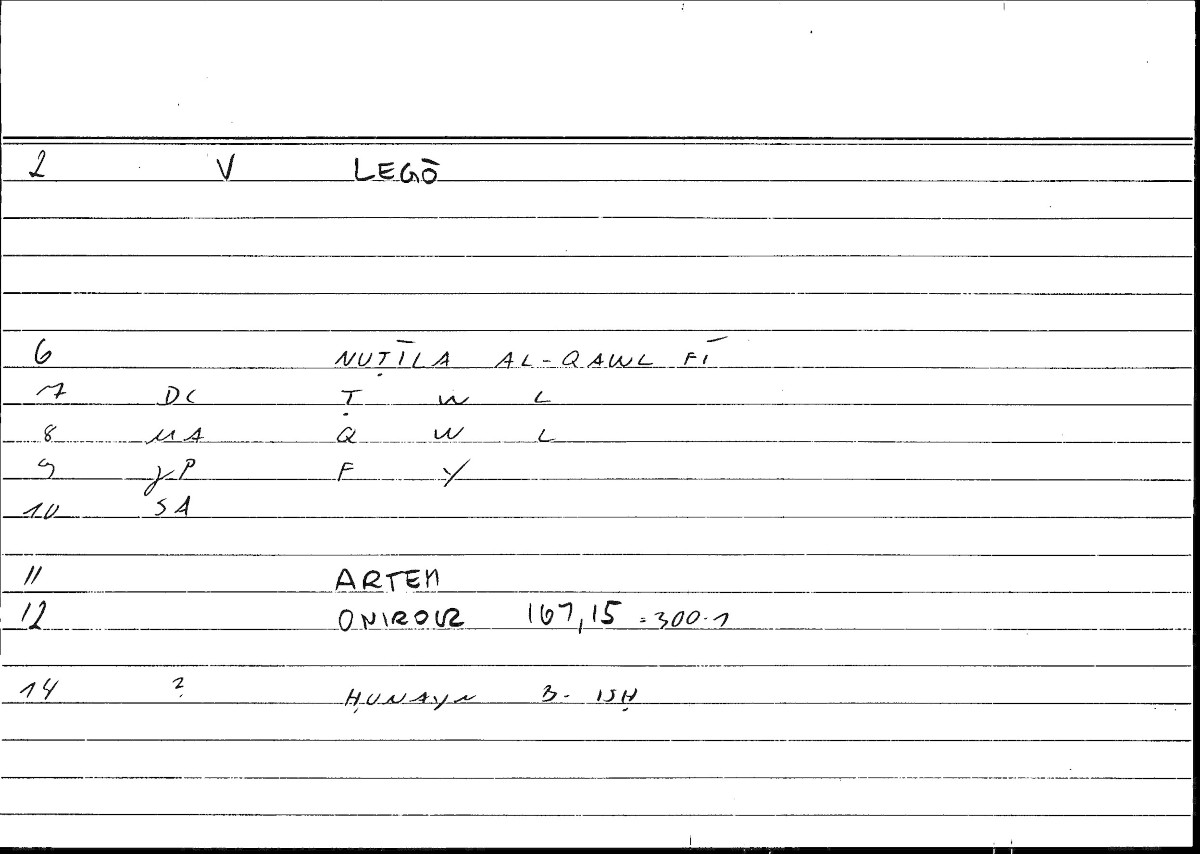 2 V LEGŌ
6 NUṬĪLA AL-QAWL FĪ
7 DC Ṭ W L
8 MA Q W L
9 γP F Y
10 SA
11 ARTEM
12 ONIROCR 167,15 = 300.1
14 ? ḤUNAYN B. ISḤ